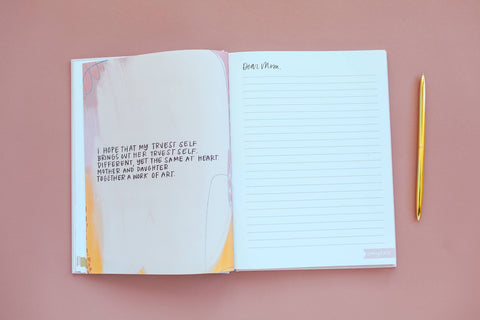 I HOPE THAT MY TRUEST SELF
BRINGS OUT HER TRUEST SELF.
DIFFERENT, YET THE SAME AT HEART.
MOTHER AND DAUGHTER
TOGETHER A WORK OF ART.
Dear Mom,